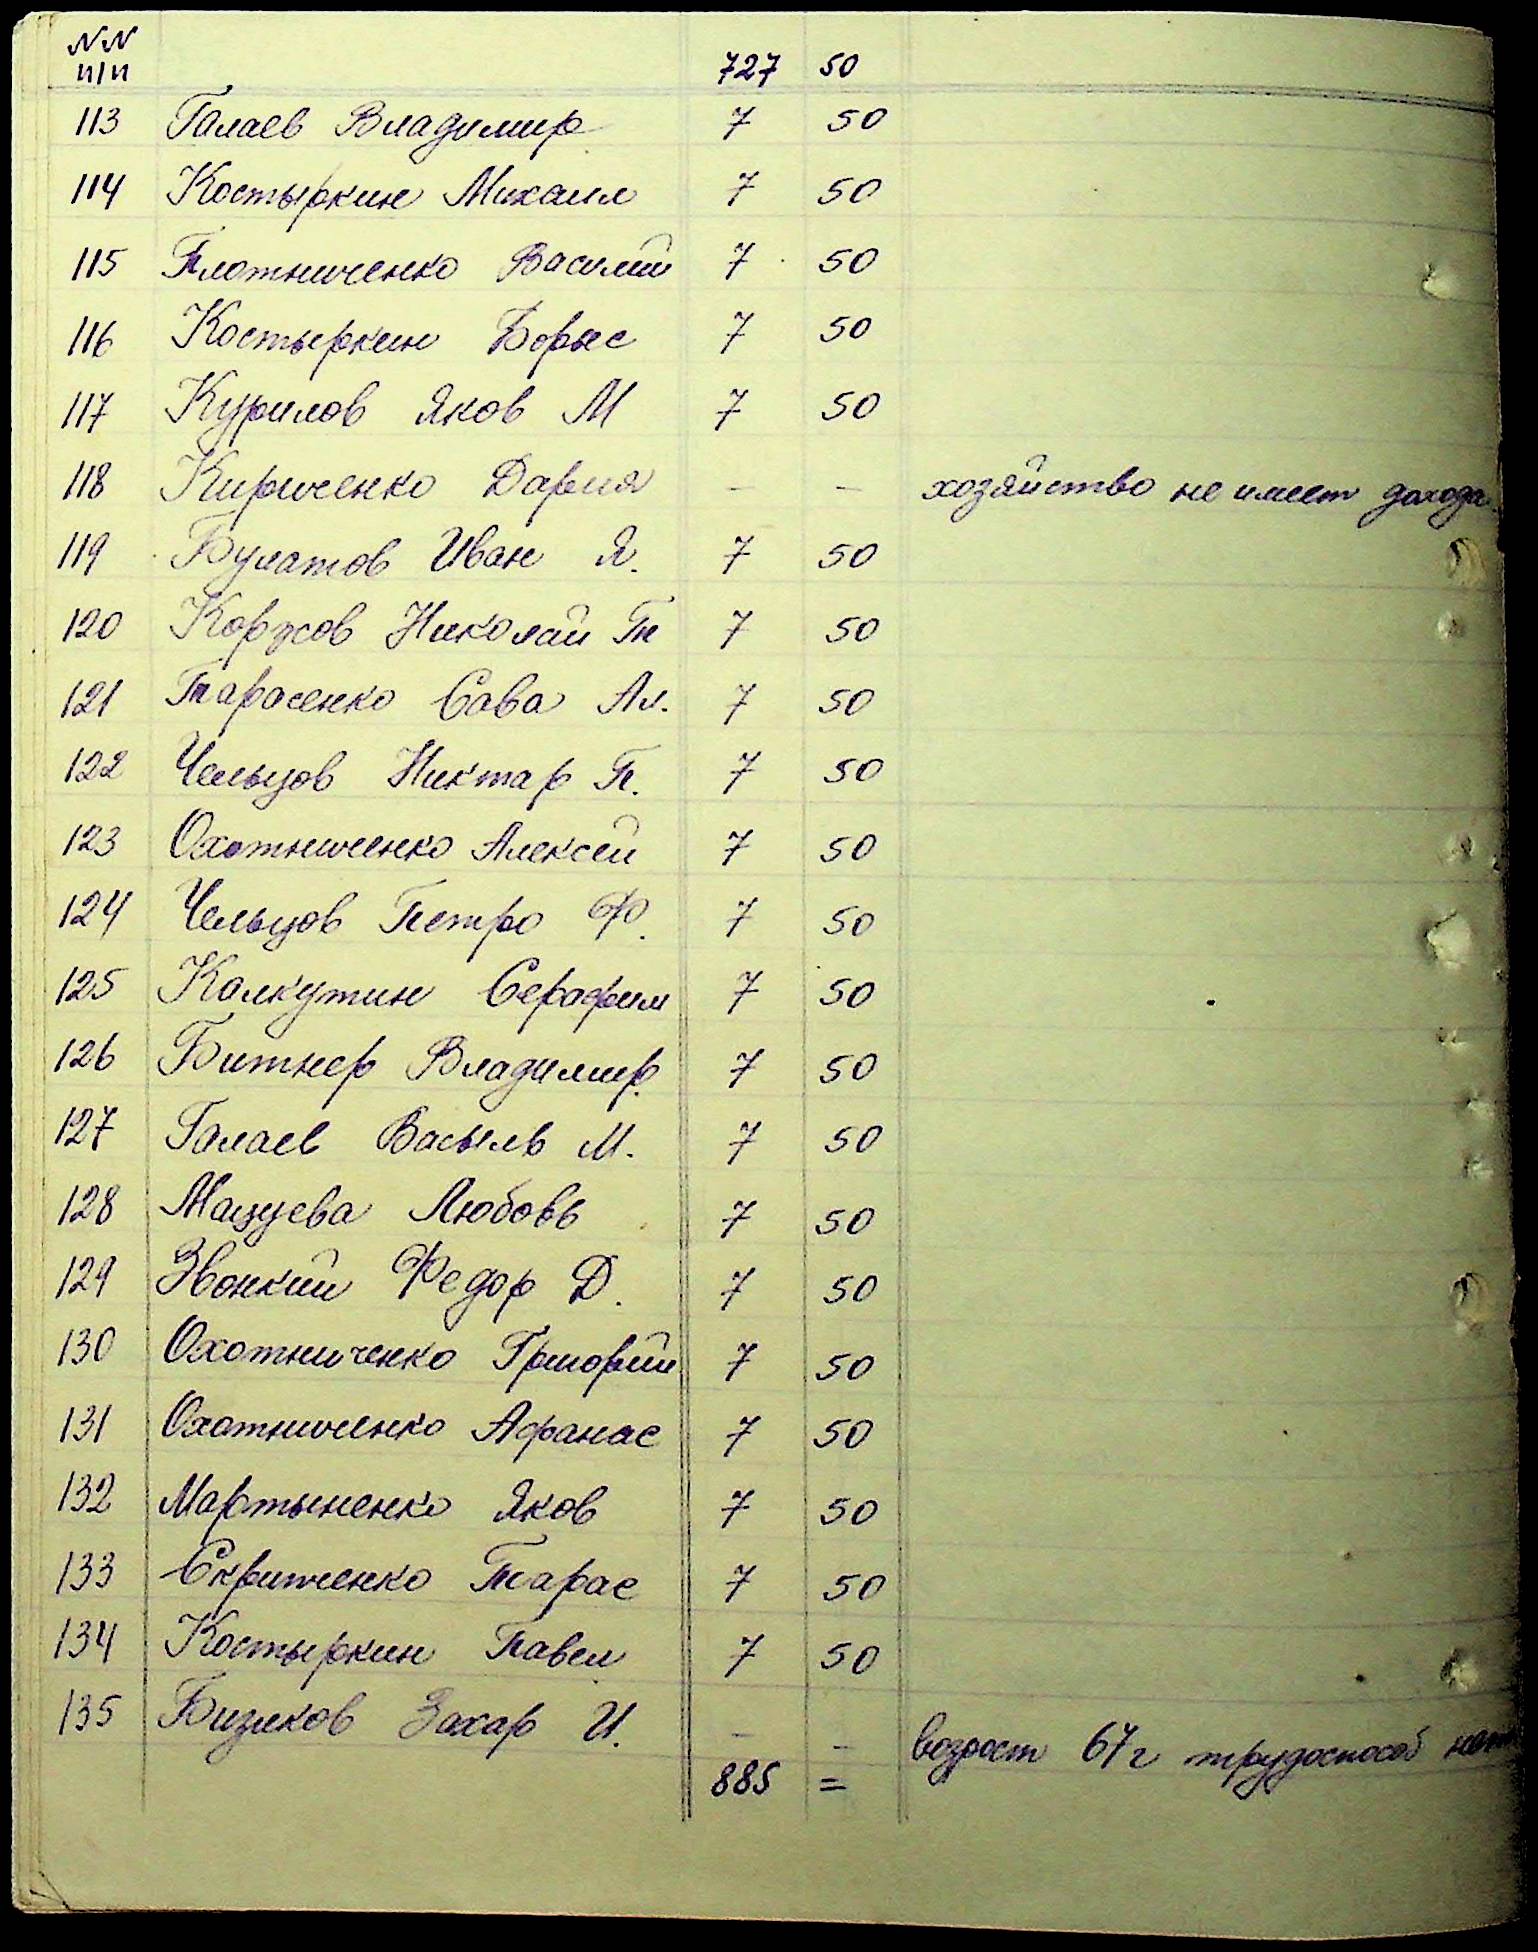 NN
п/п 727 50
113 Галаев Владимир 7 50
114 Костыркин Михаил 7 50
115 Плотниченко Василий 7 50
116 Костыркин Борис 7 50
117 Курилов Яков М 7 50
118 Кириченко Дария – – хозяйство не имеет дохода.
119 Булатов Иван Я. 7 50
120 Корусов Николай Ти 7 50
121 Тарасенко Сава Ал. 7 50
122 Чельцов Никтар П. 7 50
123 Охотниченко Алексей 7 50
124 Чельцов Петро Ф. 7 50
125 Калкутин Серафим 7 50
126 Битнер Владимир. 7 50
127 Галаев Василь М. 7 50
128 Мацуева Любовь 7 50
129 Звонкий Федор Д. 7 50
130 Охотниченко Григорий 7 50
131 Охотниченко Афанас 7 50
132 Мартыненко Яков 7 50
133 Скрипченко Тарас 7 50
134 Костыркин Павел 7 50
135 Бизяков Захар И. – – возраст 67 г трудоспособ нет
885 =